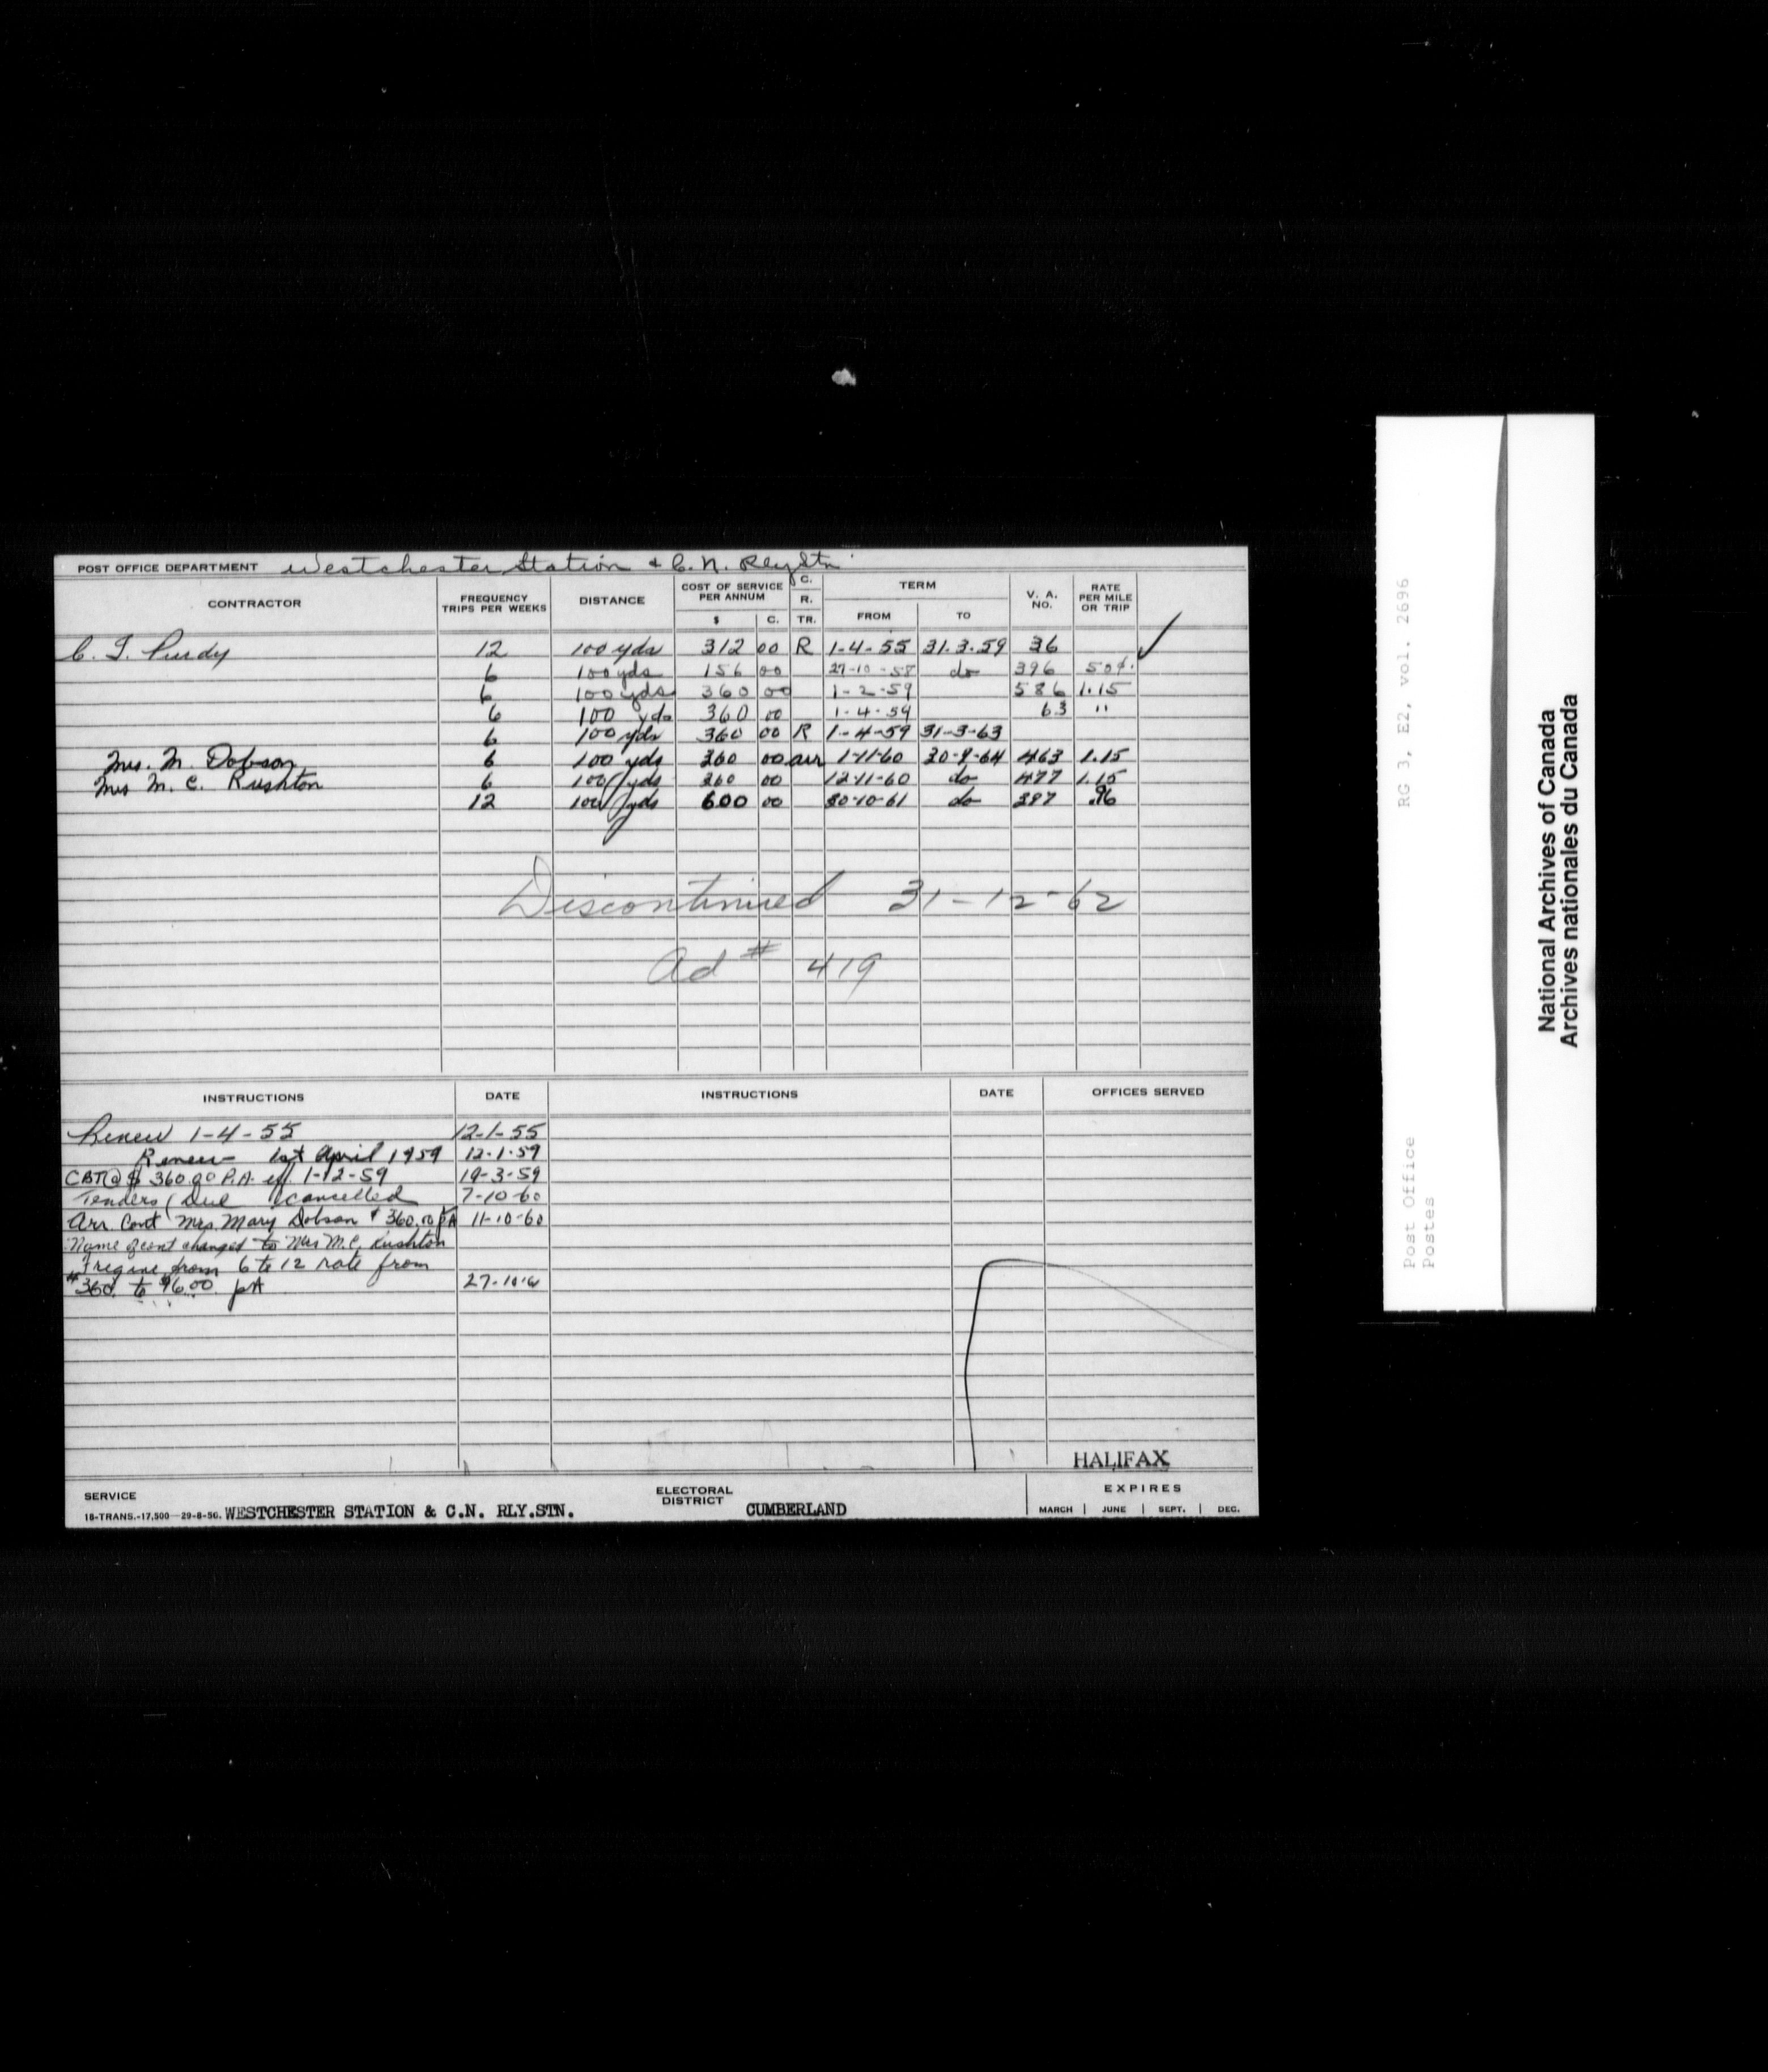 POST OFFICE DEPARTMENT Westchester Station & C. N. Rly Stn
CONTRACTOR FREQUENCY TRIPS PER WEEKS DISTANCE COST OF SERVICE PER ANNUM $ C. C. R. TR. TERM FROM TO V. A. NO. RATE PER MILE OR TRIP
Purdy 12 100 yds 312 00 R 1-4-55 31.3.59 36 ✓
6 100 yds 156 00 27-10-58 do 396 50¢.
6 100 yds 360 00 1-2-59 586 1.15
6 100 yds 360 00 1-4-59 63 "
6 100 yds 360 00 R 1-4-59 31-3-63
Mrs. M. Dobson 6 100 yds 360 00 arr 1-11-60 30-9-64 463 1.15
Mrs M. C. Rushton 6 100 yds 360 00 12-11-60 do 477 1.15
12 100 yds 600 00 30-10-61 do 397 .96
Discontinued 31-12-62
Ad # 419
INSTRUCTIONS DATE INSTRUCTIONS DATE OFFICES SERVED
Renew 1-4-55 12-1-55
Renew 1st April 1959 12-1-59
CBT@ $360.00 P.A. eff. 1-12-59 19-3-59
Tenders Due cancelled 7-10-60
Arr. Cont Mrs. Mary Dobson $360.00 PA 11-10-60
Name of cont changed to Mrs M.C. Rushton
from 6 to 12 rate from
$360. to pA
HALIFAX
SERVICE ELECTORAL DISTRICT EXPIRES
18-TRANS.-17,500—29-8-50. WESTCHESTER STATION & C.N. RLY.STN. CUMBERLAND MARCH | JUNE | SEPT. | DEC.
RG 3, E2, vol. 2696
Post Office
Postes
National Archives of Canada
Archives nationales du Canada